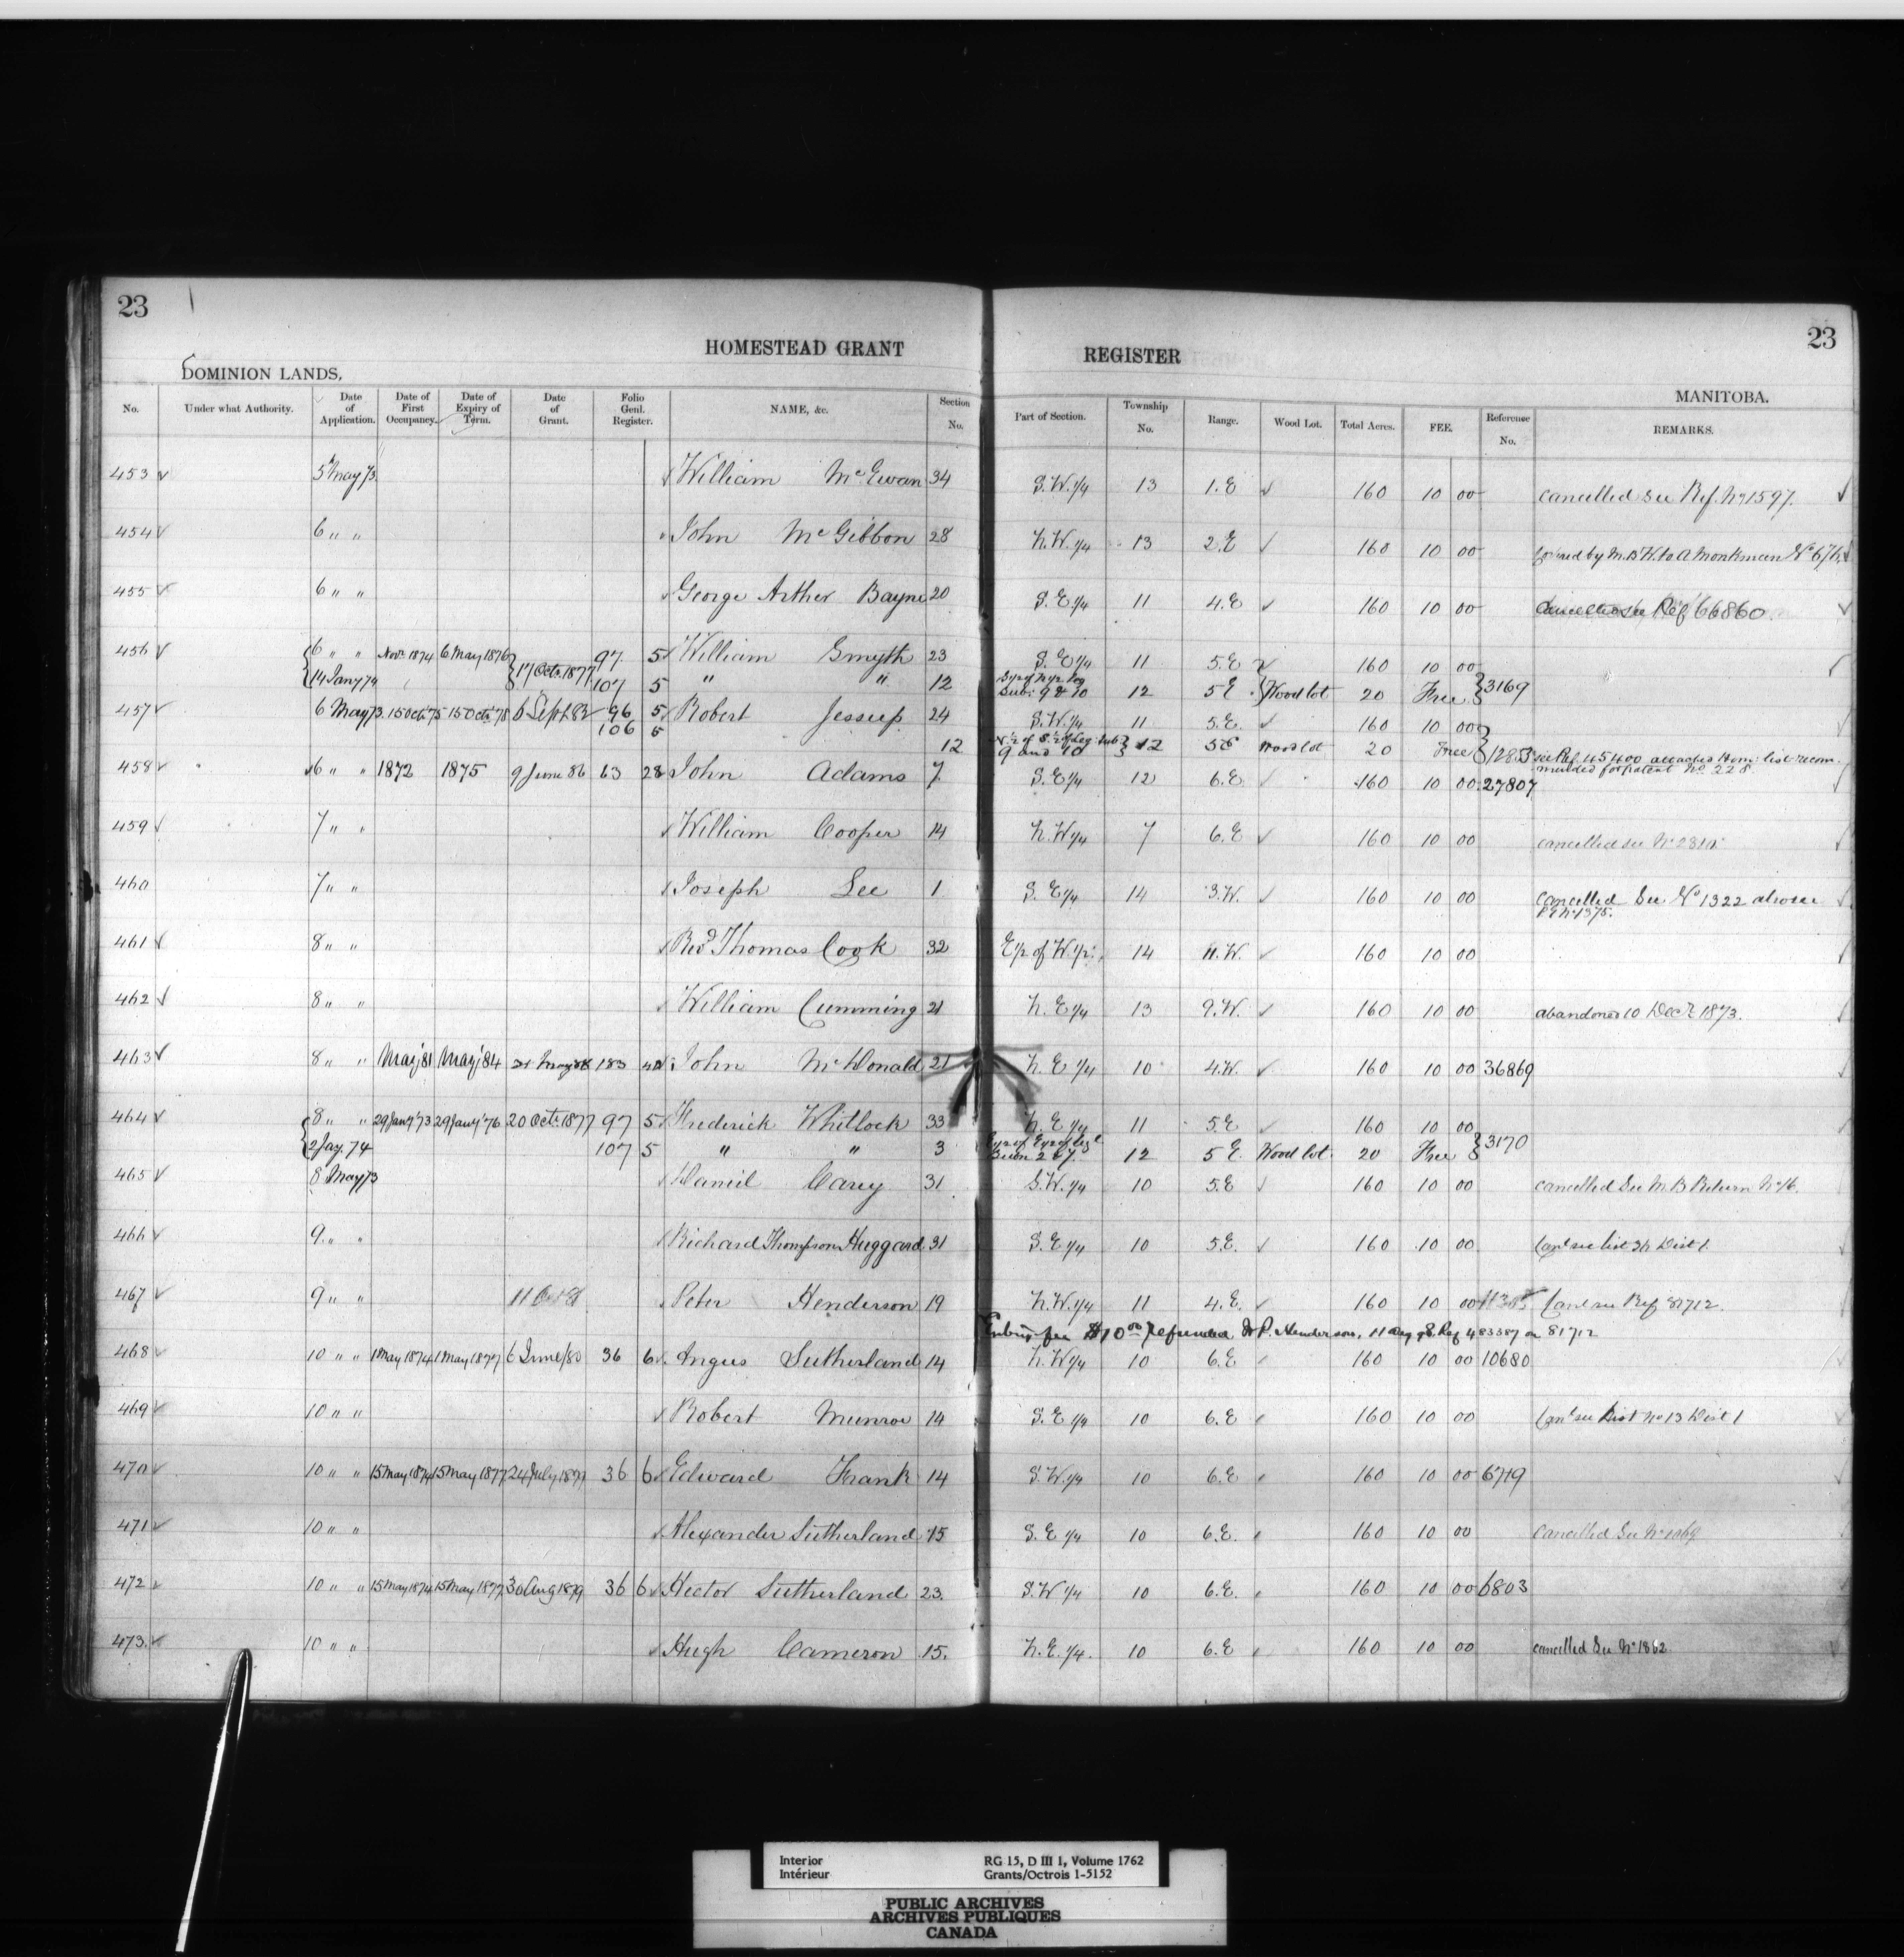 23
23
HOMESTEAD GRANT REGISTER
DOMINION LANDS.
MANITOBA.
No. Under what Authority. Date of Application. Date of First Occupancy. Date of Expiry of Term. Date of Grant. Folio Genl. Register. NAME, &c. Section No. Part of Section. Township No. Range. Wood Lot. Total Acres. FEE. Reference No. REMARKS.
453 5 May 73 William McEwan 34 S.W. 1/4 13 1.E 160 10 00 cancelled see Ref. No 1597.
454 6 " " John McGibbon 28 N.W. 1/4 13 2.E 160 10 00 by M.B.W. to A Monkman No 676
455 6 " " George Arther Bayne 20 S.E. 1/4 11 4.E 160 10 00 Cancelled see Ref 66860
456 6 " " Novr 1874 6 May 1876 17 Octr 1877 97 5 William Smyth 23 S.E 1/4 11 5.E 160 10 00 3169
14 Jany 74 107 5 " " 12 Subs: 9 & 10 12 5 E Wood lot 20 Free
457 6 May 73 15 Oct 75 15 Oct 78 6 Sept 82 96 5 Robert Jessup 24 S.W. 1/4 11 5.E. 160 10 00
106 5 12 N 1/2 of S. 1/2 of Leg: Sub 9 and 10 12 5E Wood lot 20 Free 1285 see Ref. 45400 attached Hom: list recom-
mended for patent No. 228
458 6 " " 1872 1875 9 June 86 63 28 John Adams 7 S.E 1/4 12 6.E 160 10 00 27807
459 7 " " William Cooper 14 N.W 1/4 7 6.E 160 10 00 cancelled see No 2810
460 7 " " Joseph Lee 1 S.E 1/4 14 3.W. 160 10 00 cancelled See No 1322 also see
P E No 1375.
461 8 " " Revd Thomas Cook 32 E 1/2 of W. 1/2 14 11.W. 160 10 00
462 8 " " William Cumming 21 N.E 1/4 13 9.W. 160 10 00 abandoned 10 Decr 1873.
463 8 " " May '81 May '84 31 May 88 183 40 John McDonald 21 N.E 1/4 10 4.W. 160 10 00 36869
464 8 " " 29 Jany '73 29 Jany '76 20 Oct: 1877 97 5 Frederick Whitlock 33 N.E 1/4 11 5.E 160 10 00 3170
2 Jay. 74 107 5 " " 3 E 1/2 of E 1/2 of leg l 12 5 E. Wood lot 20 Free
465 8 May 73 Daniel Carey 31 S.W. 1/4 10 5.E 160 10 00 cancelled See M.B Return No 16.
466 9 " " Richard Thompson Huggard 31 S.E 1/4 10 5.E. 160 10 00 Canl see list 36 Dist 1
467 9 " " Peter Henderson 19 N.W. 1/4 11 4.E. 160 10 00 Canl see Ref 81712.
Entry fee $10.00 refunded to P. Henderson, 11 Aug 98. Ref 483387 on 81712
468 10 " " 1 May 1874 1 May 1877 6 June/80 36 6 Angus Sutherland 14 N.W 1/4 10 6.E 160 10 00 10680
469 10 " " Robert Munroe 14 S.E 1/4 10 6.E 160 10 00 Canl see List No 13 Dist 1
470 10 " " 15 May 1874 15 May 1877 24 July 1877 36 6 Edward Frank 14 S.W. 1/4 10 6.E 160 10 00 6719
471 10 " " Alexander Sutherland 15 S.E 1/4 10 6.E. 160 10 00 cancelled See No 1069
472 10 " " 15 May 1874 15 May 1877 30 Aug 1879 36 6 Hector Sutherland 23. S.W 1/4 10 6.E. 160 10 00 6803
473. 10 " " Hugh Cameron 15. N.E. 1/4. 10 6.E 160 10 00 cancelled See No 1862
Interior RG 15, D III 1, Volume 1762
Intérieur Grants/Octrois 1-5152
PUBLIC ARCHIVES
ARCHIVES PUBLIQUES
CANADA